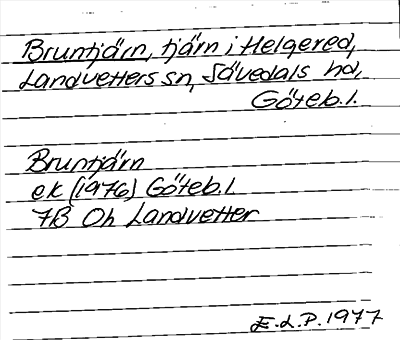 Bruntjärn, tjärn i Helgered,
Landvetters sn, Sävedals hd,
Göteb.l.
Bruntjärn
ek (1976) Göteb.l
7B Oh Landvetter
E.L.P. 1977